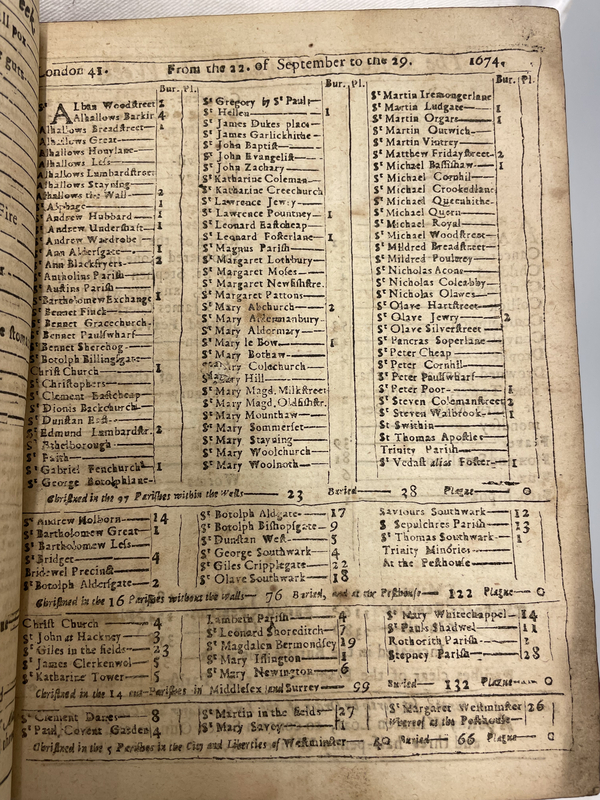 London 41. From the 22. of September to the 29. 1674.
Bur. Pl.
St Alban Woodstreet 2
Alhallows Barkin 4
Alhallows Breadstreet 1
Alhallows Great
Alhallows Honylane
Alhallows Less
Alhallows Lumbardstreet
Alhallows Stayning
Alhallows the Wall 2
St Alphage 1
St Andrew Hubbard 1
St Andrew Undershaft 1
St Andrew Wardrobe
St Ann Aldersgate 1
St Ann Blackfryers 2
St Antholins Parish
St Austins Parish
St Bartholomew Exchange 1
St Bennet Finck
St Bennet Gracechurch
St Bennet Paulswharf
St Bennet Sherehog
St Botolph Billingsgate
Christ Church 1
St Christophers
St Clement Eastcheap
St Dionis Backchurch
St Dunstan East
St Edmund Lumbardstr. 2
St Ethelborough
St Faith
St Gabriel Fenchurch 1
St George Botolphlane
Bur. Pl.
St Gregory by St Paul
St Hellen 1
St James Dukes place
St James Garlickhithe
St John Baptist
St John Evangelist
St John Zachary
St Katharine Coleman
St Katharine Creechurch
St Lawrence Jewry
St Lawrence Pountney 1
St Leonard Eastcheap
St Leonard Fosterlane 1
St Magnus Parish
St Margaret Lothbury
St Margaret Moses
St Margaret Newfishstre.
St Margaret Pattons
St Mary Abchurch 2
St Mary Aldermanbury
St Mary Aldermary
St Mary le Bow 1
St Mary Bothaw
St Mary Colechurch
St Mary Hill
St Mary Magd. Milkstreet
St Mary Magd. Oldfishstr.
St Mary Mounthaw
St Mary Sommerset
St Mary Stayning
St Mary Woolchurch
St Mary Woolnoth
Bur. Pl.
St Martin Iremongerlane
St Martin Ludgate 1
St Martin Orgars 1
St Martin Outwich
St Martin Vintrey
St Matthew Fridaystreet 2
St Michael Bassishaw 1
St Michael Cornhil
St Michael Crookedlane
St Michael Queenhithe
St Michael Quern
St Michael Royal
St Michael Woodstreet
St Mildred Breadstreet
St Mildred Poultrey
St Nicholas Acons
St Nicholas Coleabby
St Nicholas Olaves
St Olave Hartstreet
St Olave Jewry 2
St Olave Silverstreet
St Pancras Soperlane
St Peter Cheap
St Peter Cornhil
St Peter Paulswharf
St Peter Poor 1
St Steven Colemanstreet 2
St Steven Walbrook 1
St Swithin
St Thomas Apostles
Trinity Parish
St Vedast alias Foster 1
Christned in the 97 Parishes within the Walls 23 Buried 38 Plague 0
St Andrew Holborn 14
St Bartholomew Great 1
St Bartholomew Less
St Bridget 4
Bridewel Precinct
St Botolph Aldersgate 2
St Botolph Aldgate 17
St Botolph Bishopsgate 9
St Dunstan West 5
St George Southwark 4
St Giles Cripplegate 22
St Olave Southwark 18
Saviours Southwark 12
S Sepulchres Parish 13
St Thomas Southwark 1
Trinity Minories
At the Pesthouse
Christned in the 16 Parishes without the Walls 76 Buried, and at the Pesthouse 122 Plague 0
Christ Church 4
St John at Hackney 3
St Giles in the fields 23
St James Clerkenwol 5
St Katharine Tower 5
Lambeth Parish 4
St Leonard Shoreditch 7
St Magdalen Bermondsey 19
St Mary Islington 1
St Mary Newington 6
St Mary Whitechappel 14
St Pauls Shadwel 11
Rothorith Parish
Stepney Parish 28
Christned in the 14 out-Parishes in Middlesex and Surrey 99 Buried 132 Plague 0
St Clement Danes 8
St Paul Covent Gasden 4
St Martin in the fields 27
St Mary Savoy 1
St Margaret Westminster 26
Whereof at the Pesthouse
Christned in the 5 Parishes in the City and Liberties of Westminster 40 Buried 66 Plague 0